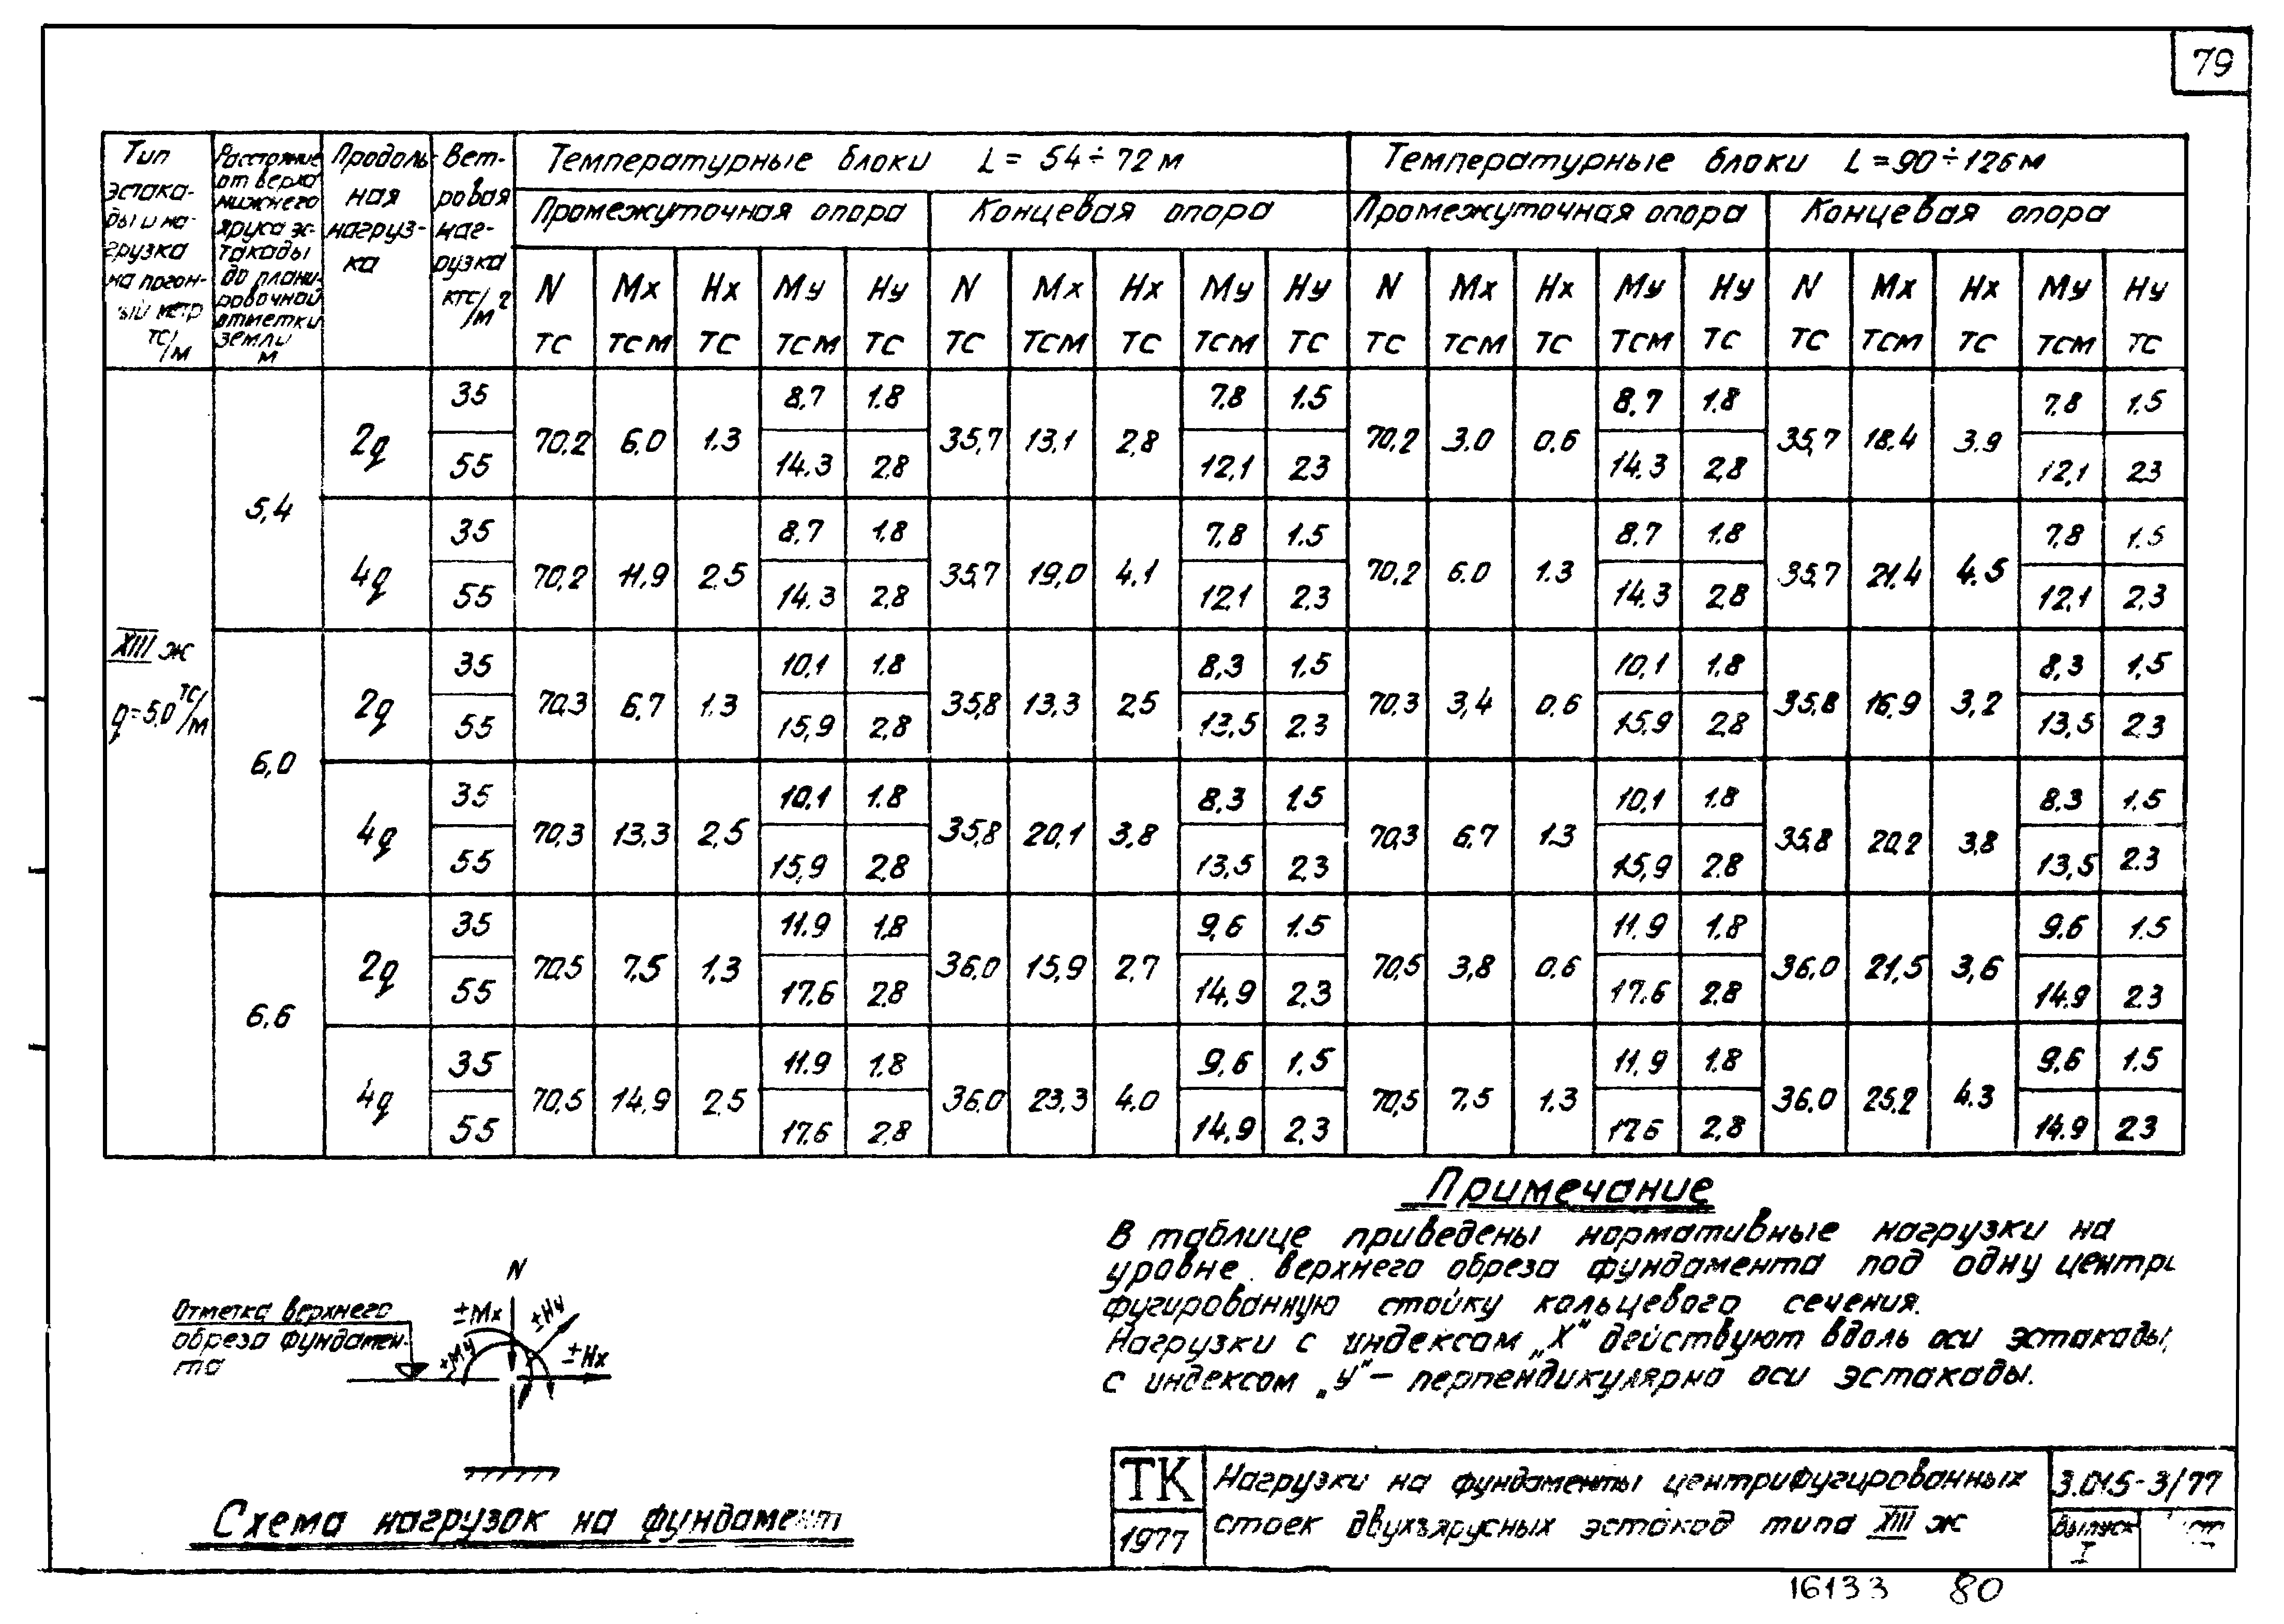 79
Тип эстакады и нагрузка на погонный метр тс/м
Расстояние от верха нижнего яруса эстакады до планировочной отметки земли м
Продольная нагрузка
Ветровая нагрузка кгс/м²
Температурные блоки L = 54÷72 м
Температурные блоки L = 90÷126 м
Промежуточная опора Концевая опора Промежуточная опора Концевая опора
N Mx Hx My Hy N Mx Hx My Hy N Mx Hx My Hy N Mx Hx My Hy
тс тсм тс тсм тс тс тсм тс тсм тс тс тсм тс тсм тс тс тсм тс тсм тс
XIII ж
q=5,0 тс/м
5,4
2q
35 8,7 1.8 7,8 1.5 8,7 1.8 7,8 1.5
70,2 6,0 1.3 35,7 13,1 2,8 70,2 3.0 0.6 35,7 18.4 3.9
55 14.3 2,8 12,1 2,3 14.3 2,8 12,1 2,3
4q
35 8,7 1.8 7,8 1.5 8,7 1.8 7,8 1.5
70,2 11,9 2,5 35,7 19,0 4,1 70,2 6.0 1.3 35,7 21,4 4.5
55 14.3 2,8 12,1 2,3 14.3 2,8 12,1 2,3
6,0
2q
35 10,1 1.8 8,3 1.5 10,1 1.8 8,3 1,5
70,3 6,7 1.3 35,8 13,3 2,5 70,3 3,4 0,6 35,8 16,9 3,2
55 15,9 2,8 13,5 2,3 15,9 2,8 13,5 2,3
4q
35 10,1 1.8 8,3 1,5 10,1 1.8 8.3 1.5
70,3 13,3 2,5 35,8 20,1 3,8 70,3 6,7 1.3 35,8 20,2 3,8
55 15,9 2,8 13,5 2,3 15,9 2.8 13,5 2.3
6,6
2q
35 11.9 1,8 9,6 1.5 11.9 1.8 9.6 1.5
70,5 7,5 1,3 36,0 15,9 2,7 70,5 3,8 0,6 36,0 21,5 3,6
55 17.6 2,8 14,9 2,3 17.6 2,8 14.9 2,3
4q
35 11.9 1.8 9,6 1,5 11,9 1.8 9,6 1.5
70,5 14,9 2,5 36,0 23,3 4.0 70,5 7.5 1.3 36,0 25,2 4.3
55 17.6 2,8 14.9 2,3 17.6 2,8 14.9 2,3
Примечание
В таблице приведены нормативные нагрузки на
уровне верхнего обреза фундамента под одну центри
фугированную стойку кольцевого сечения.
Нагрузки с индексам „X" действуют вдоль оси эстакады,
с индексом „У" — перпендикулярно оси эстакады.
N
±Mx
±Hy
±My
±Hx
Отметка верхнего
обреза фундамен-
та
Схема нагрузок на фундамент
ТК
1977
Нагрузки на фундаменты центрифугированных
стоек двухъярусных эстакад типа XIII ж
3.015-3/77
Выпуск
I
16133 80